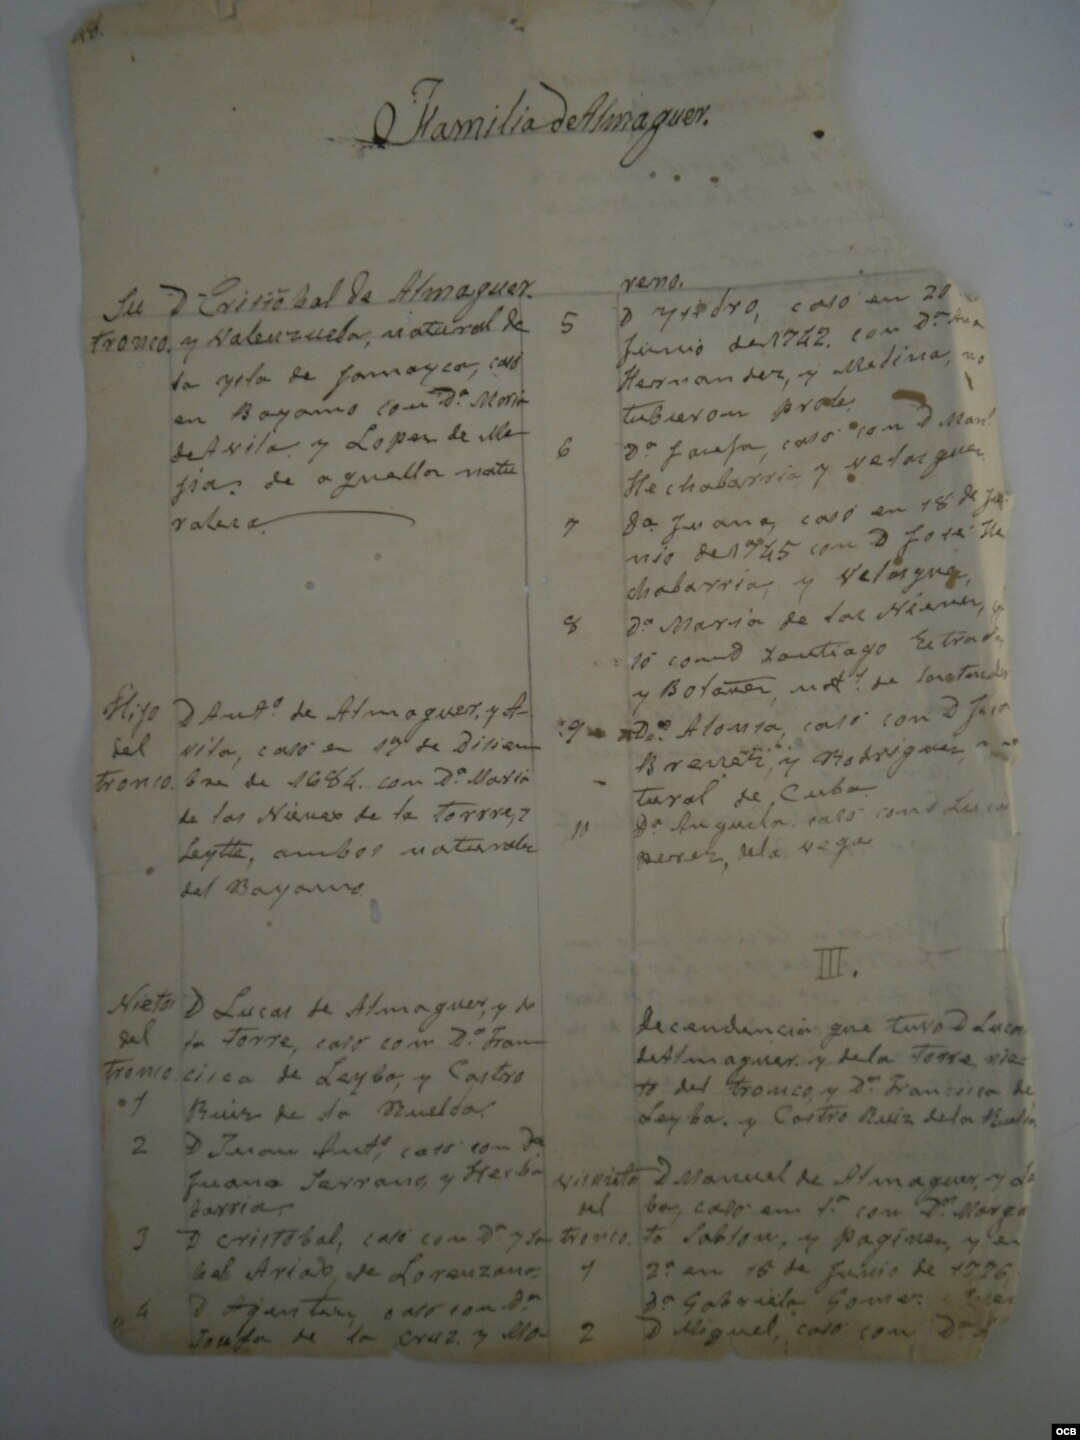 Familia de Almaguer.
Su D Cristobal de Almaguer
tronco. y Valenzuela, natural de
la ysla de Jamayca, caso
en Bayamo con Dª Maria
de Avila y Lopez de Me-
jias de aquella natu
raleza
Hijo D Antº de Almaguer, y A-
del vila, caso en 17 de Diciem
tronco. bre de 1684. con Dª Maria
de las Nieves de la Torrre, y
Leytte, ambos naturales
del Bayamo
Nieto D Lucas de Almaguer, y de
del la Torre, caso con Dª Fran-
tronco cisca de Leyba, y Castro
1 Ruiz de la Ruelda.
2 D Juan Antº, caso con Dª
Juana Serrano, y Hecha
barria
3 D Cristobal, caso con Dª ysa
bel Arias, de Lorenzano
4 D Agustin, caso con Dª
Josefa de la Cruz y Mo-
reno.
5 D Ysidro, caso en 20
Junio de 1742. con Dª
Hernandez, y Medina, no
tubieron prole.
6 Dª Josefa, caso con D Manl
Hechabarria y Velasquez
7 Dª Juana, caso en 18 de Ju-
nio de 1745 con D José He
chabarria, y Velasquez,
8 Dª Maria de las Nieves, ca
só con D Santiago Estrada
y Botañez, natl de
9 Dª Alonsa, caso con D
y Rodriguez, na
tural de Cuba
11 Dª Anguela caso con D Lucas
perez, dela vega
III.
Decendencia que tuvo D Lucas
de Almaguer y dela Torre nie-
to del tronco, y Dª Francisca de
Leyba, y Castro Ruiz dela Ruelda
Visnieto D Manuel de Almaguer, y Ley
del ba, caso en 1ª con Dª Marga
tronco. ta Sablon, y paginez, y en
1 2ª en 16 de Junio de 1776
Dª Gabriela Gomez
2 D Miguel, caso con Dª
OCB